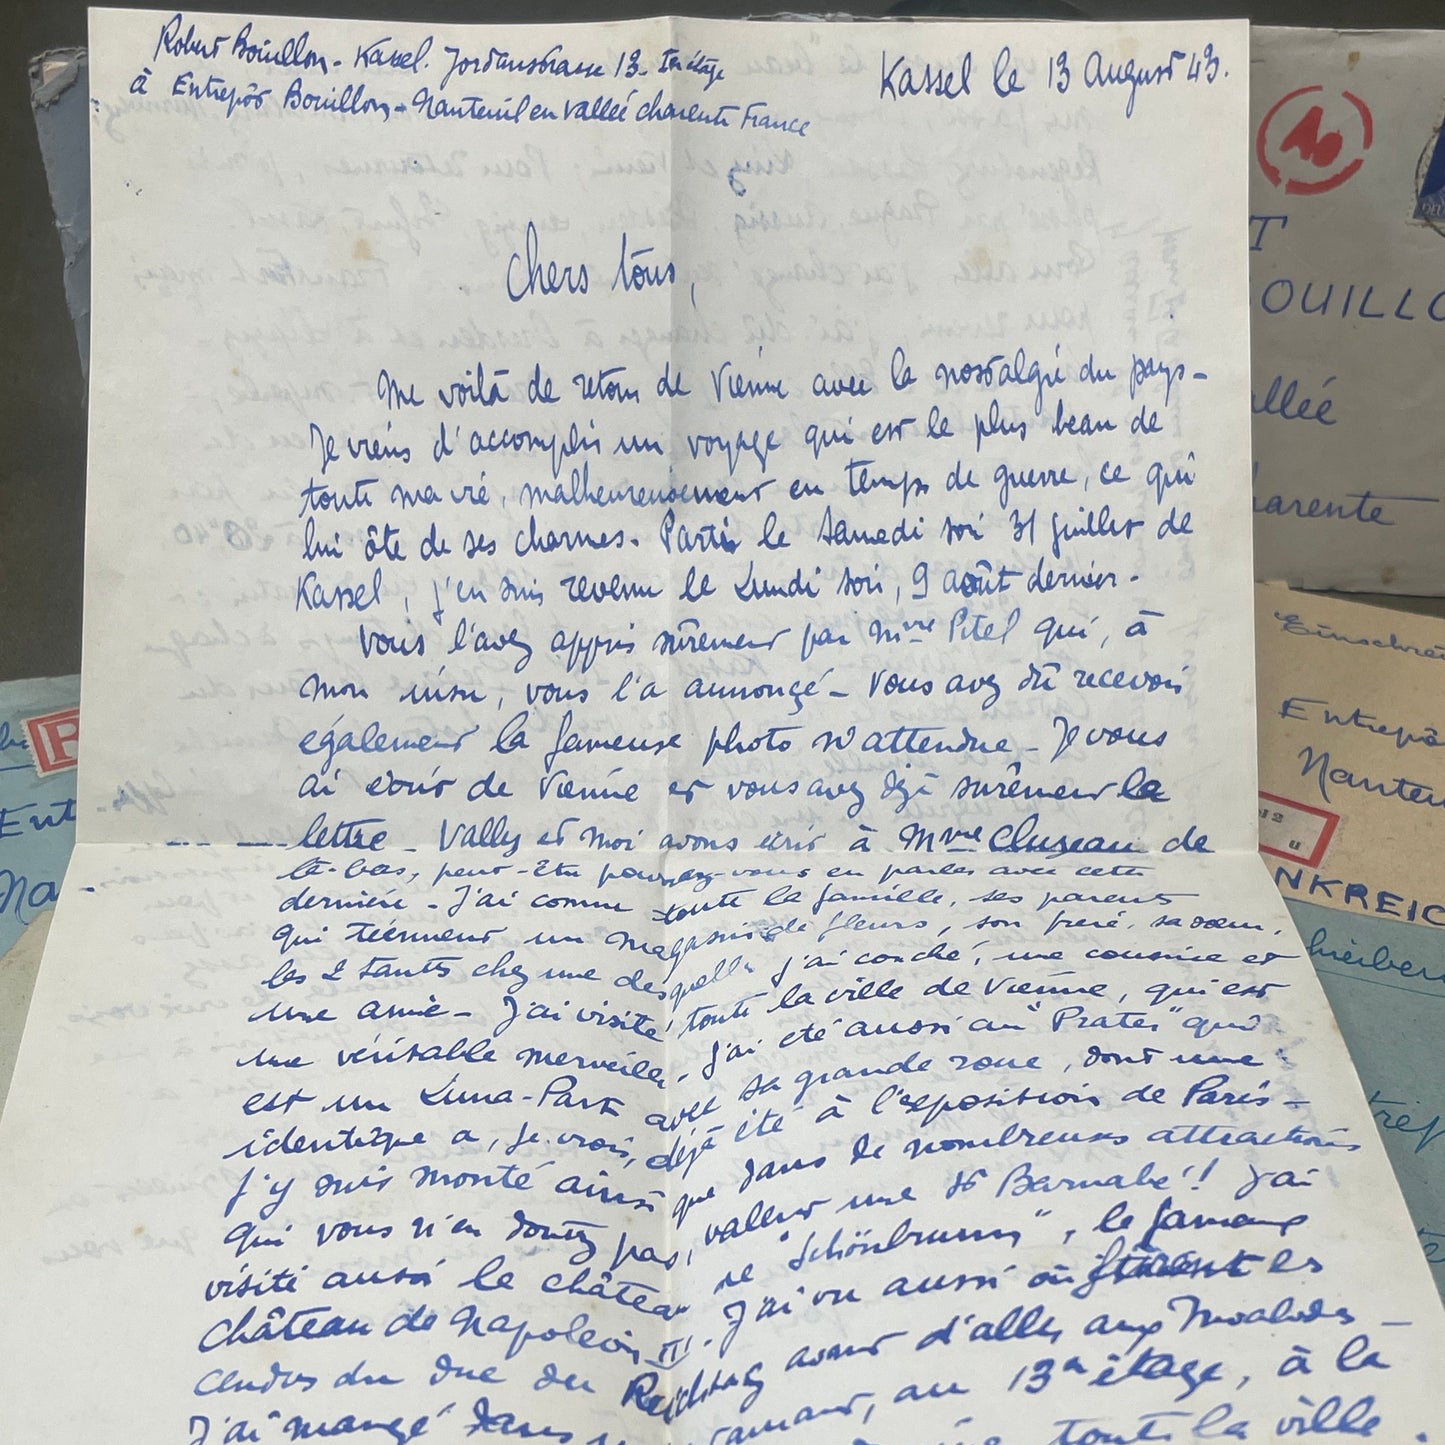 Robert Bouillon - Kassel. Jordanstrasse 13 - 1er étage
à Entrepôt Bouillon - Nanteuil en vallée charente France
Kassel le 13 August 43.
Chers tous,
Me voilà de retour de Vienne avec la nostalgie du pays -
Je viens d'accomplir un voyage qui est le plus beau de
toute ma vie, malheureusement en temps de guerre, ce qui
lui ôte de ses charmes. Parti le Samedi soir 31 juillet de
Kassel, j'en suis revenu le Lundi soir, 9 août dernier.
Vous l'avez appris sûrement par Mme Pitel qui, à
mon insu, vous l'a annoncé - Vous avez dû recevoir
également la fameuse photo n'attendue - Je vous
ai écrit de Vienne et vous avez déjà sûrement la
lettre - Vally et moi avons écrit à Mme Cluzeau de
là-bas, peut-être pourrez-vous en parler avec cette
dernière - J'ai connu toute la famille, ses parents
qui tiennent un magasin de fleurs, son frère, sa sœur,
les 2 tantes chez une desquelles j'ai couché, une cousine et
une amie - J'ai visité toute la ville de Vienne, qui est
une véritable merveille. J'ai été aussi au "Prater" qui
est un Luna-Park avec sa grande roue, dont une
identique a, je crois, déjà été à l'exposition de Paris -
J'y suis monté ainsi que dans de nombreuses attractions
qui vous n'en doutez pas, valent une St Barnabé! J'ai
visité aussi le château de "Schönbrunn", le fameux
château de Napoléon III. J'ai vu aussi où étaient les
cendres du duc du Reichstag avant d'aller aux Invalides -
J'ai mangé dans un restaurant, au 13e étage, à la
toute la ville.
T
OUILLO
allée
harente
Einschrei
Entrepô
Nanteui
NKREIC
Ent
Na
R
u